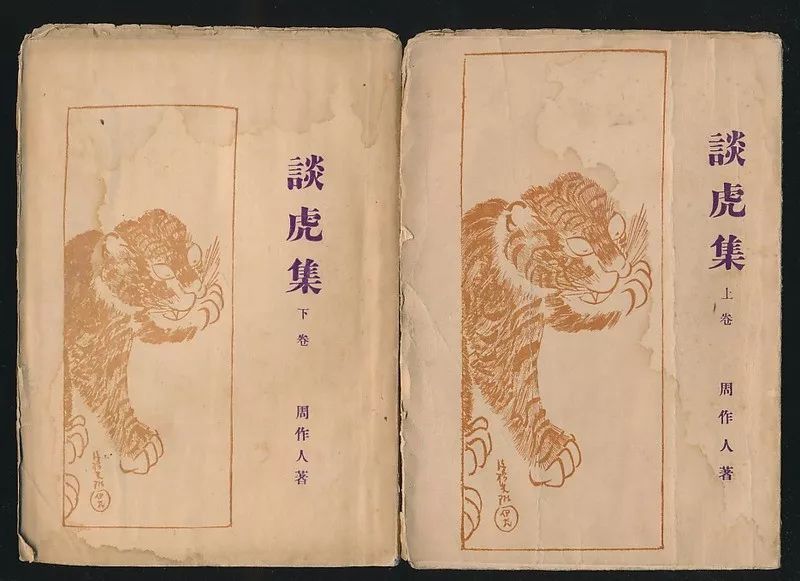 談虎集
下卷
周作人著
談虎集
上卷
周作人著